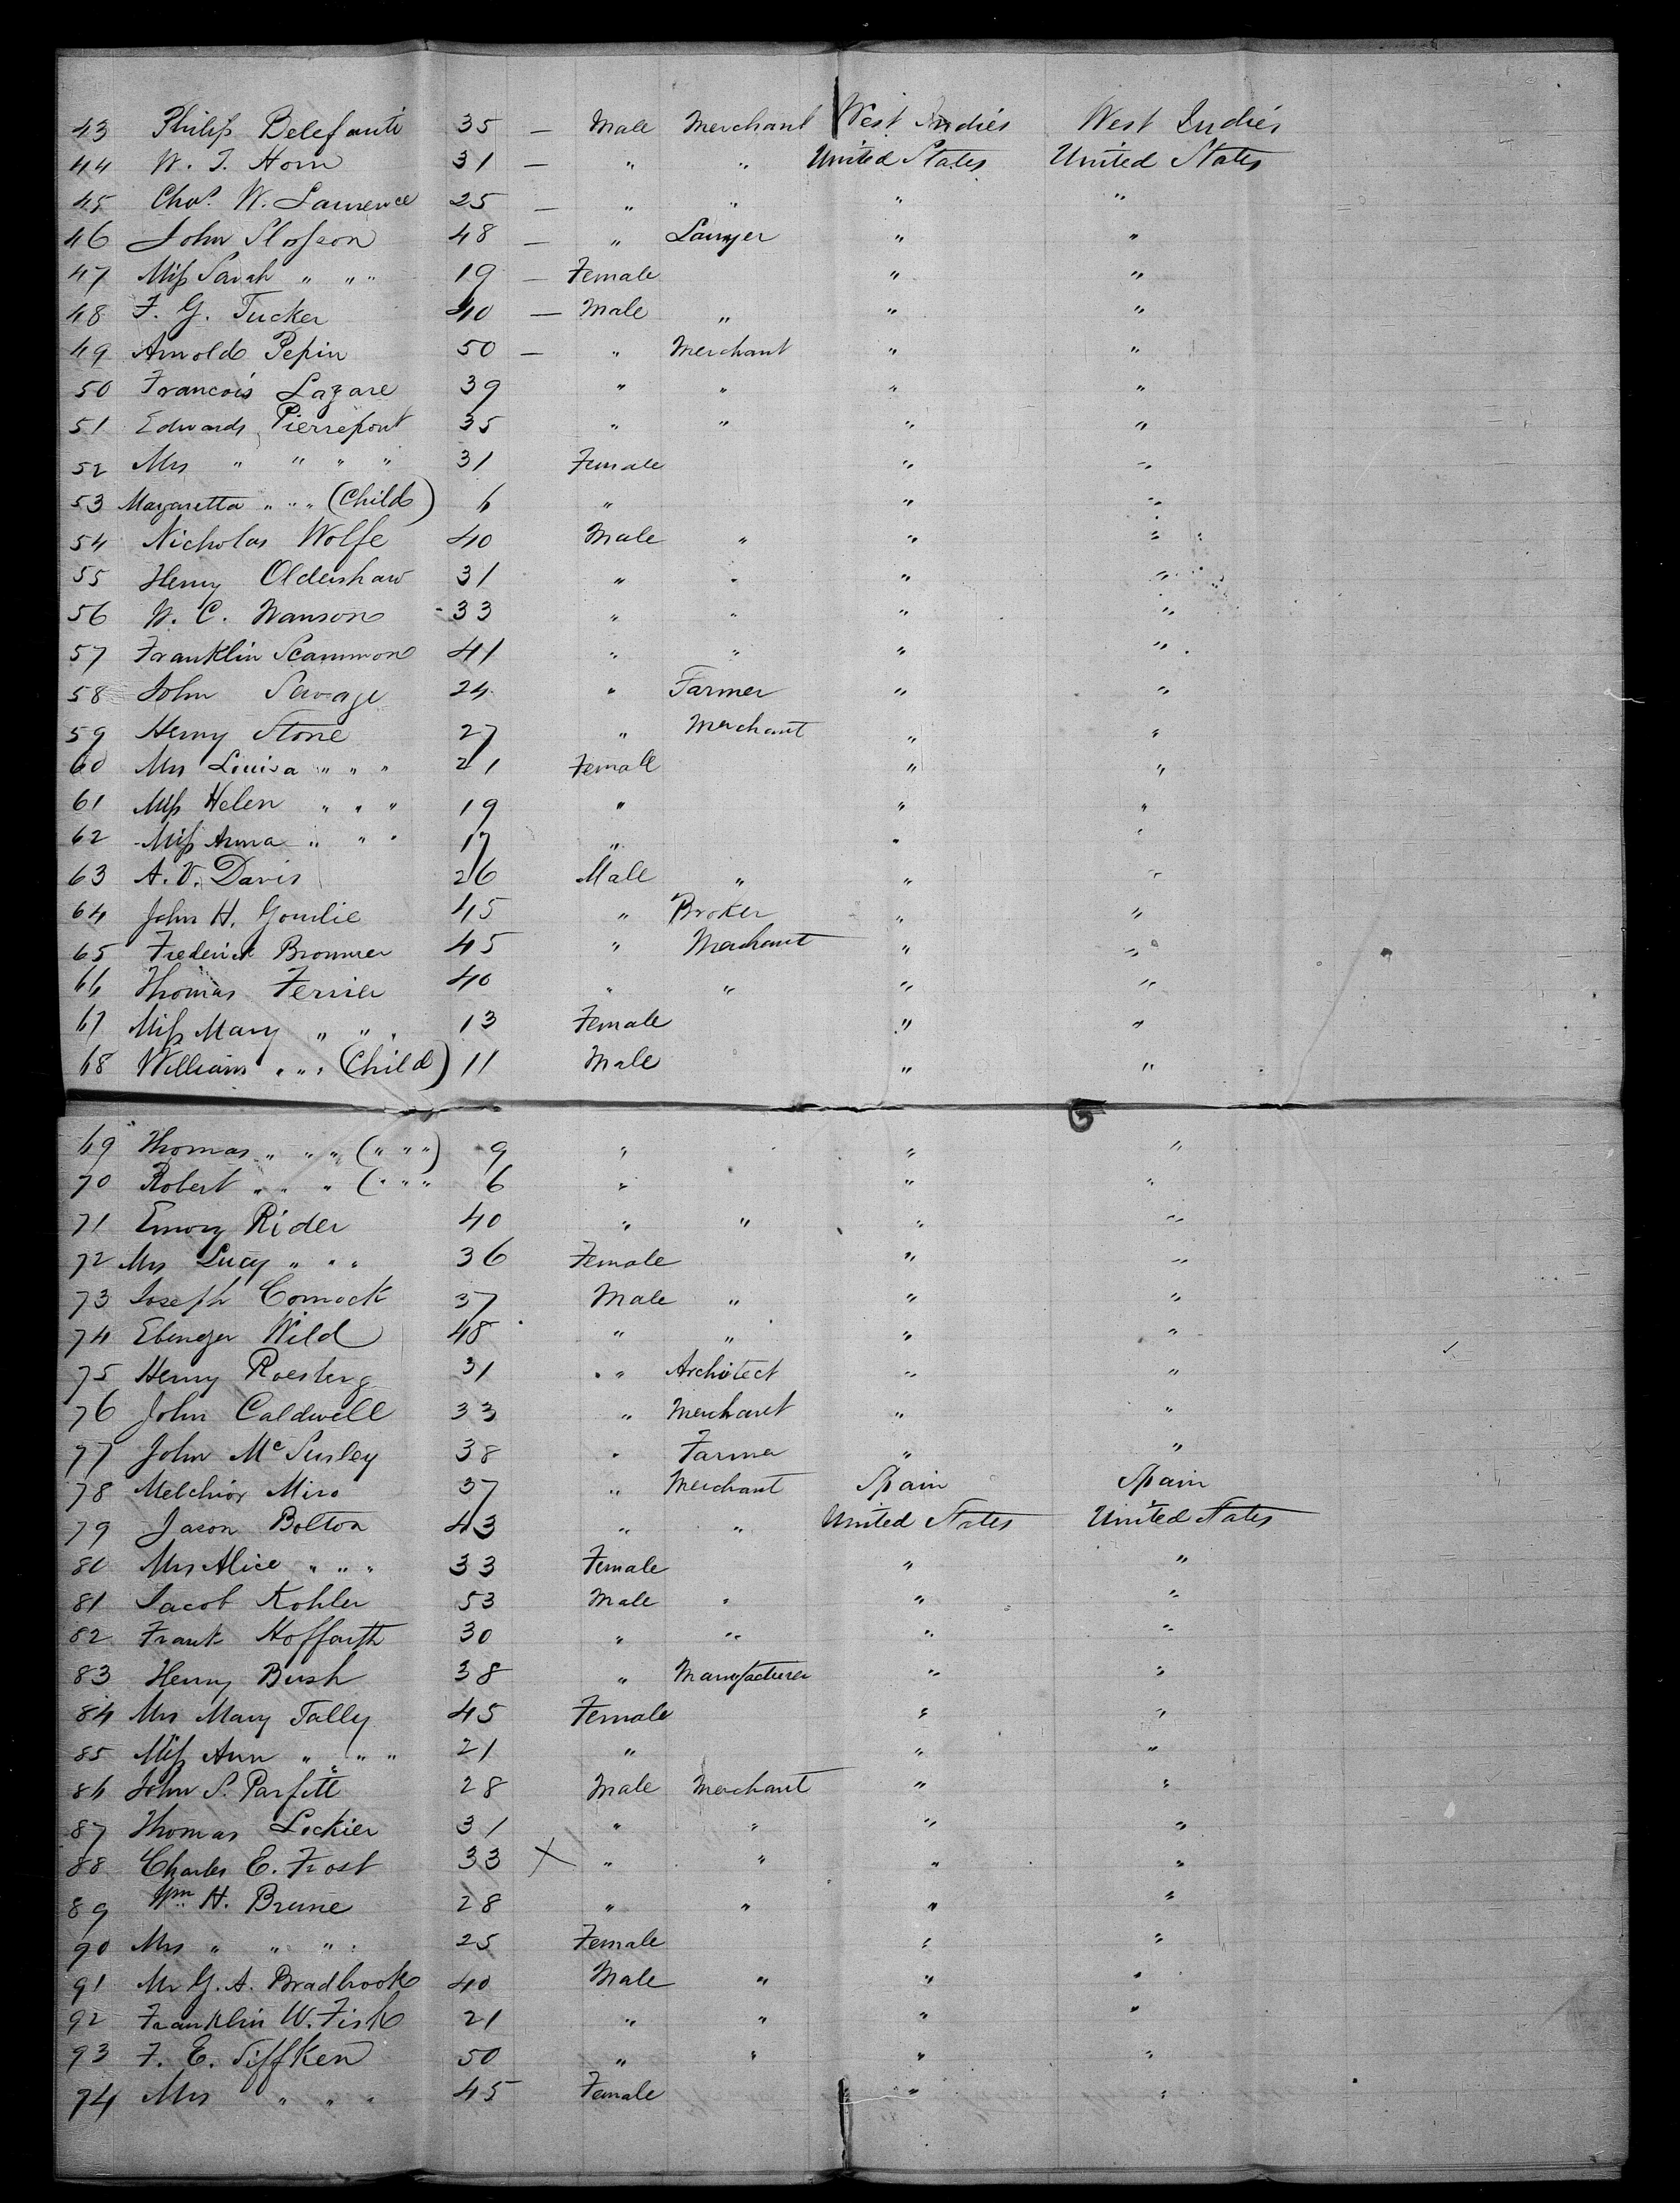 43 Philip Belefanti 35 — Male Merchant West Indies West Indies
44 W. T. Horn 31 — " " United States United States
45 Chas. W. Laurence 25 — " " " "
46 John Slosson 48 — " Lawyer " "
47 Miss Sarah " " " 19 — Female " "
48 F. G. Tucker 40 — Male " " "
49 Arnold Pepin 50 — " Merchant " "
50 Francois Lazare 39 " " " "
51 Edwards Pierrepont 35 " " " "
52 Mrs " " " " 31 Female " "
53 Margaretta " " " (Child) 6 " " "
54 Nicholas Wolfe 40 Male " " "
55 Henry Oldershaw 31 " " " "
56 W. C. Wanson 33 " " " "
57 Franklin Scammon 41 " " " "
58 John Savage 24 " Farmer " "
59 Henry Stone 27 " Merchant " "
60 Mrs Louisa " " " 21 Female " "
61 Miss Helen " " " 19 " " "
62 Miss Anna " " " 17 " " "
63 A. V. Davis 26 Male " " "
64 John H. Gourlie 45 " Broker " "
65 Frederick Bronner 45 " Merchant " "
66 Thomas Ferrier 40 " " " "
67 Miss Mary " " " 13 Female " "
68 William " " " (Child) 11 Male " "
69 Thomas " " " (" " ") 9 " " "
70 Robert " " " (" " " 6 " " "
71 Emory Rider 40 " " " "
72 Mrs Lucy " " " 36 Female " "
73 Joseph Comock 37 Male " " "
74 Ebenezer Wild 48 " " " "
75 Henry Roesberg 31 " Architect " "
76 John Caldwell 33 " Merchant " "
77 John McSurley 38 " Farmer " "
78 Melchior Miro 37 " Merchant Spain Spain
79 Jason Bolton 43 " " United States United States
80 Mrs Alice " " " 33 Female " "
81 Jacob Kohler 53 Male " " "
82 Frank Hoffarth 30 " " " "
83 Henry Bush 38 " Manufacturer " "
84 Mrs Mary Tally 45 Female " "
85 Miss Ann " " " 21 " " "
86 John S. Parfitt 28 Male Merchant " "
87 Thomas Lockier 31 " " " "
88 Charles E. Frost 33 X " " " "
89 Wm H. Brune 28 " " " "
90 Mrs " " " " 25 Female " "
91 Mr G. A. Bradbrook 40 Male " " "
92 Franklin W. Fisk 21 " " " "
93 F. E. Siffken 50 " " " "
94 Mrs " " " 45 Female " "